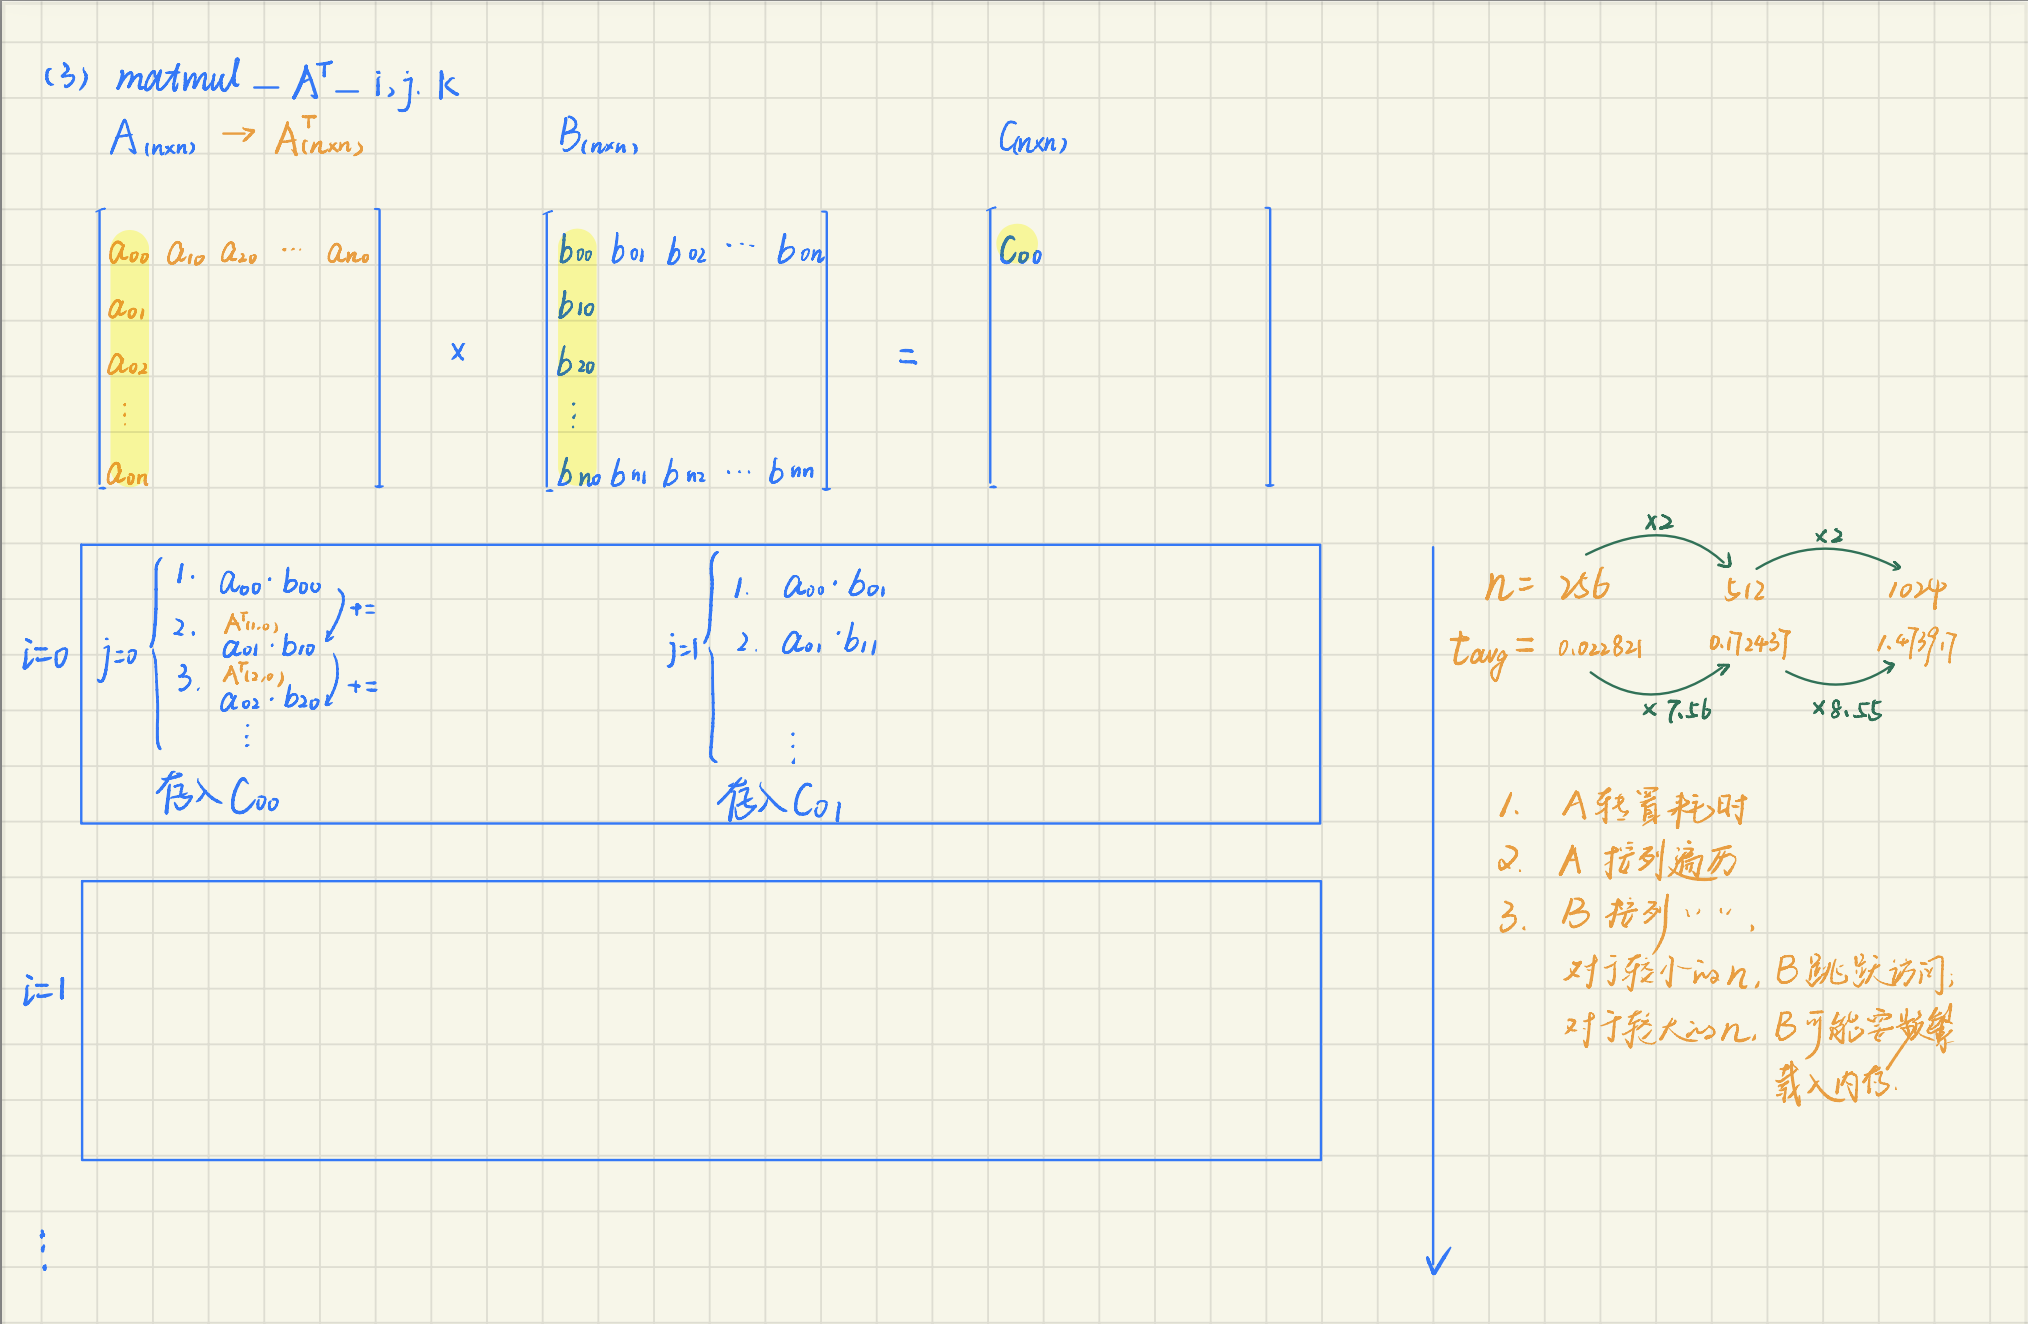 (3) matmul _ Aᵀ _ i,j.k
A(n×n) → Aᵀ(n×n) B(n×n) C(n×n)
a00 a10 a20 ··· an0
a01
a02
⋮
a0n
×
b00 b01 b02 ··· b0n
b10
b20
⋮
bn0 bn1 bn2 ··· bnn
=
C00
i=0
j=0
1. a00 · b00
+=
2. Aᵀ(1,0)
a01 · b10
3. Aᵀ(2,0)
+=
a02 · b20
⋮
存入 C00
j=1
1. a00 · b01
2. a01 · b11
⋮
存入 C01
i=1
⋮
×2 ×2
n= 256 512 1024
tavg = 0.022821 0.172437 1.473917
×7.56 ×8.55
1. A 转置耗时
2. A 按列遍历
3. B 按列 ‥ ‥ .
对于较小的n, B跳跃访问;
对于较大的n, B可能要频繁
载入内存.